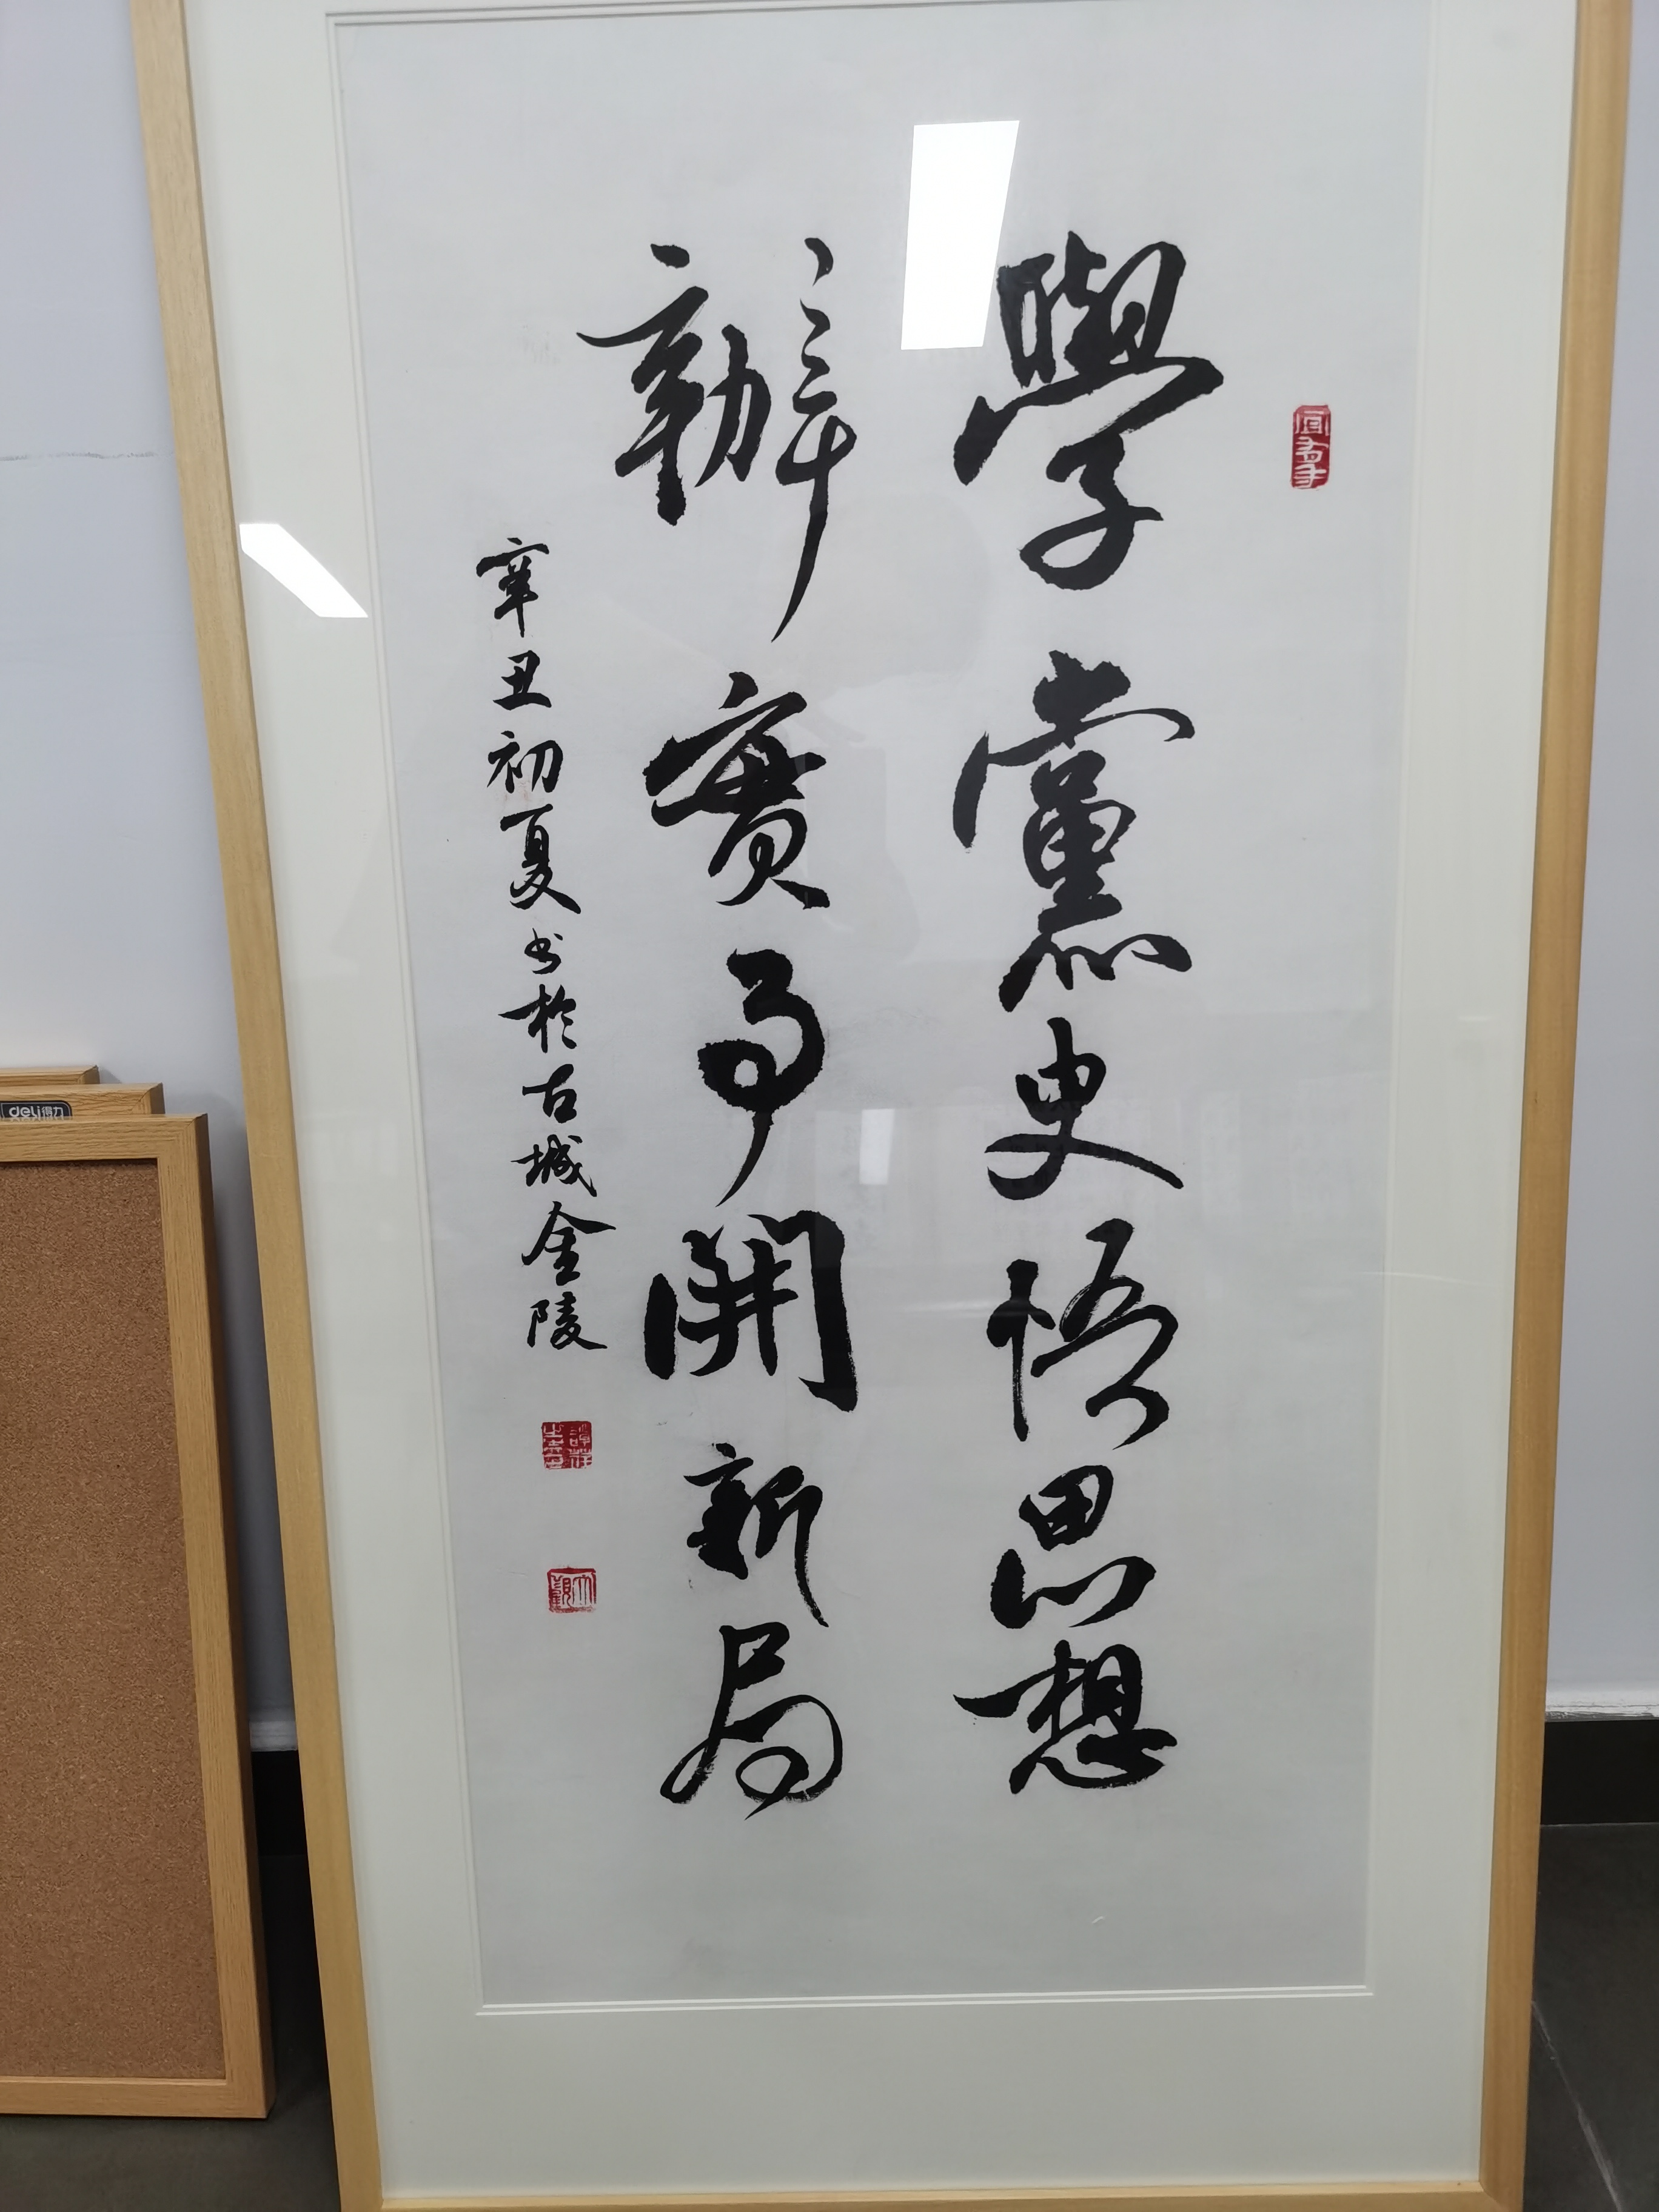 學黨史悟思想
辦實事開新局
辛丑初夏书於古城金陵
deli得力